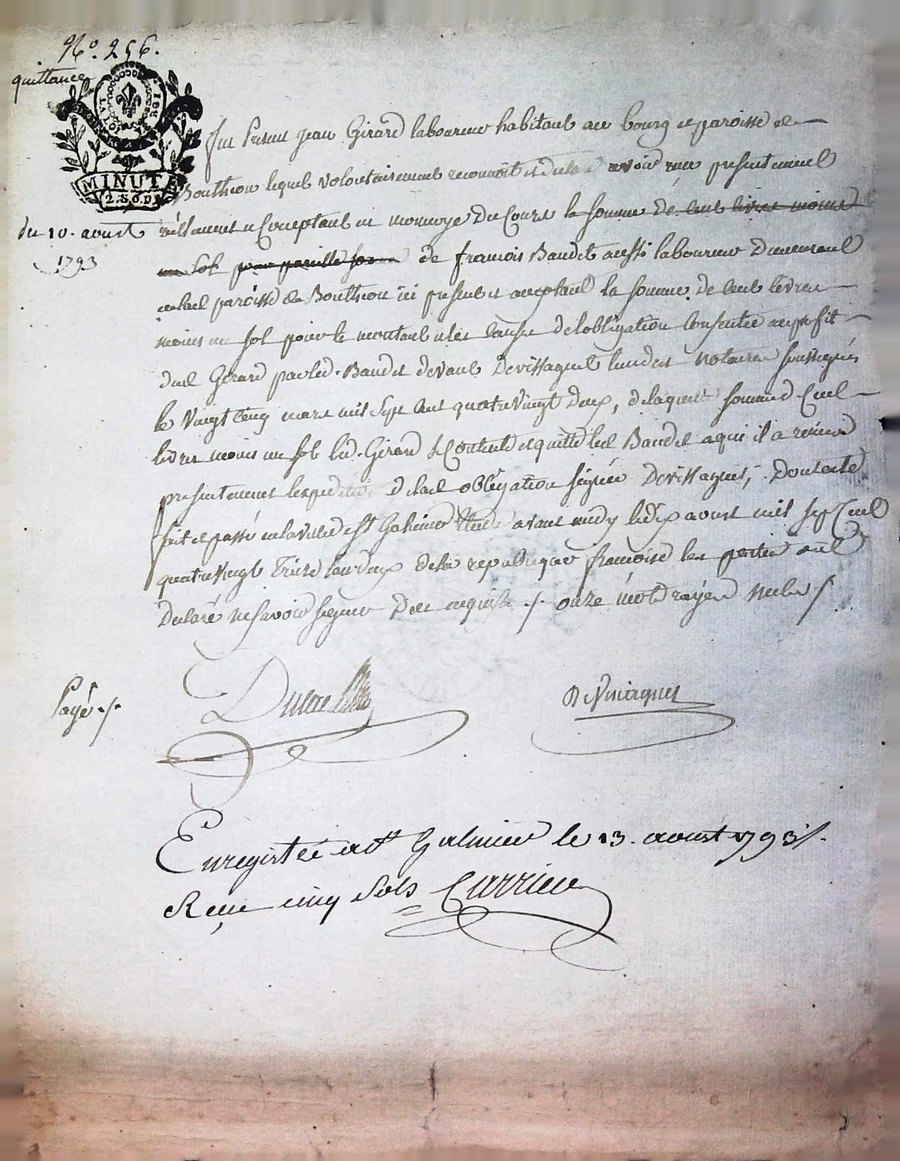 N.o 256.
quittance
LA LOI LE ROI
MINUTE
2. SO. D
du 10. aoust
1793
Fut Present Jean Girard laboureur habitant au bourg et paroisse de
Bouthéon lequel volontairement reconnoit et declare avoir reçu presentement
réellement et Comptant en monnoye du Cours la somme de cent livres moins
un sol pour pareille somme de françois Baudet aussi laboureur Demeurant
en lad. paroisse de Bouthéon ici present et acceptant la somme de Cent livres
moins un sol pour le montant et les causes de lobligation Consentie au profit
dud. Girard par led. Baudet devant Devissaguet lundes notaires soussignés
le Vingt Cinq mars mil sept Cent quatre vingt Deux, de laquelle somme de Cent
livres moins un sol led. Girard se Contente et quitte led. Baudet a qui il a remis
presentement lexpedition de lad. obligation signée Devissaguet, Dont acte
fait et passé en la ville de St. Galmier Etude avant midy le dix aoust mil sept Cent
quatre vingt Treize lan deux de la republique françoise les parties ont
Declaré ne savoir signer De ce enquises ./. onze mots rayés nuls ./.
Payé ./.
Enregistré a St. Galmier le 13. aoust 1793 ./.
Reçu cinq Sols Carrier